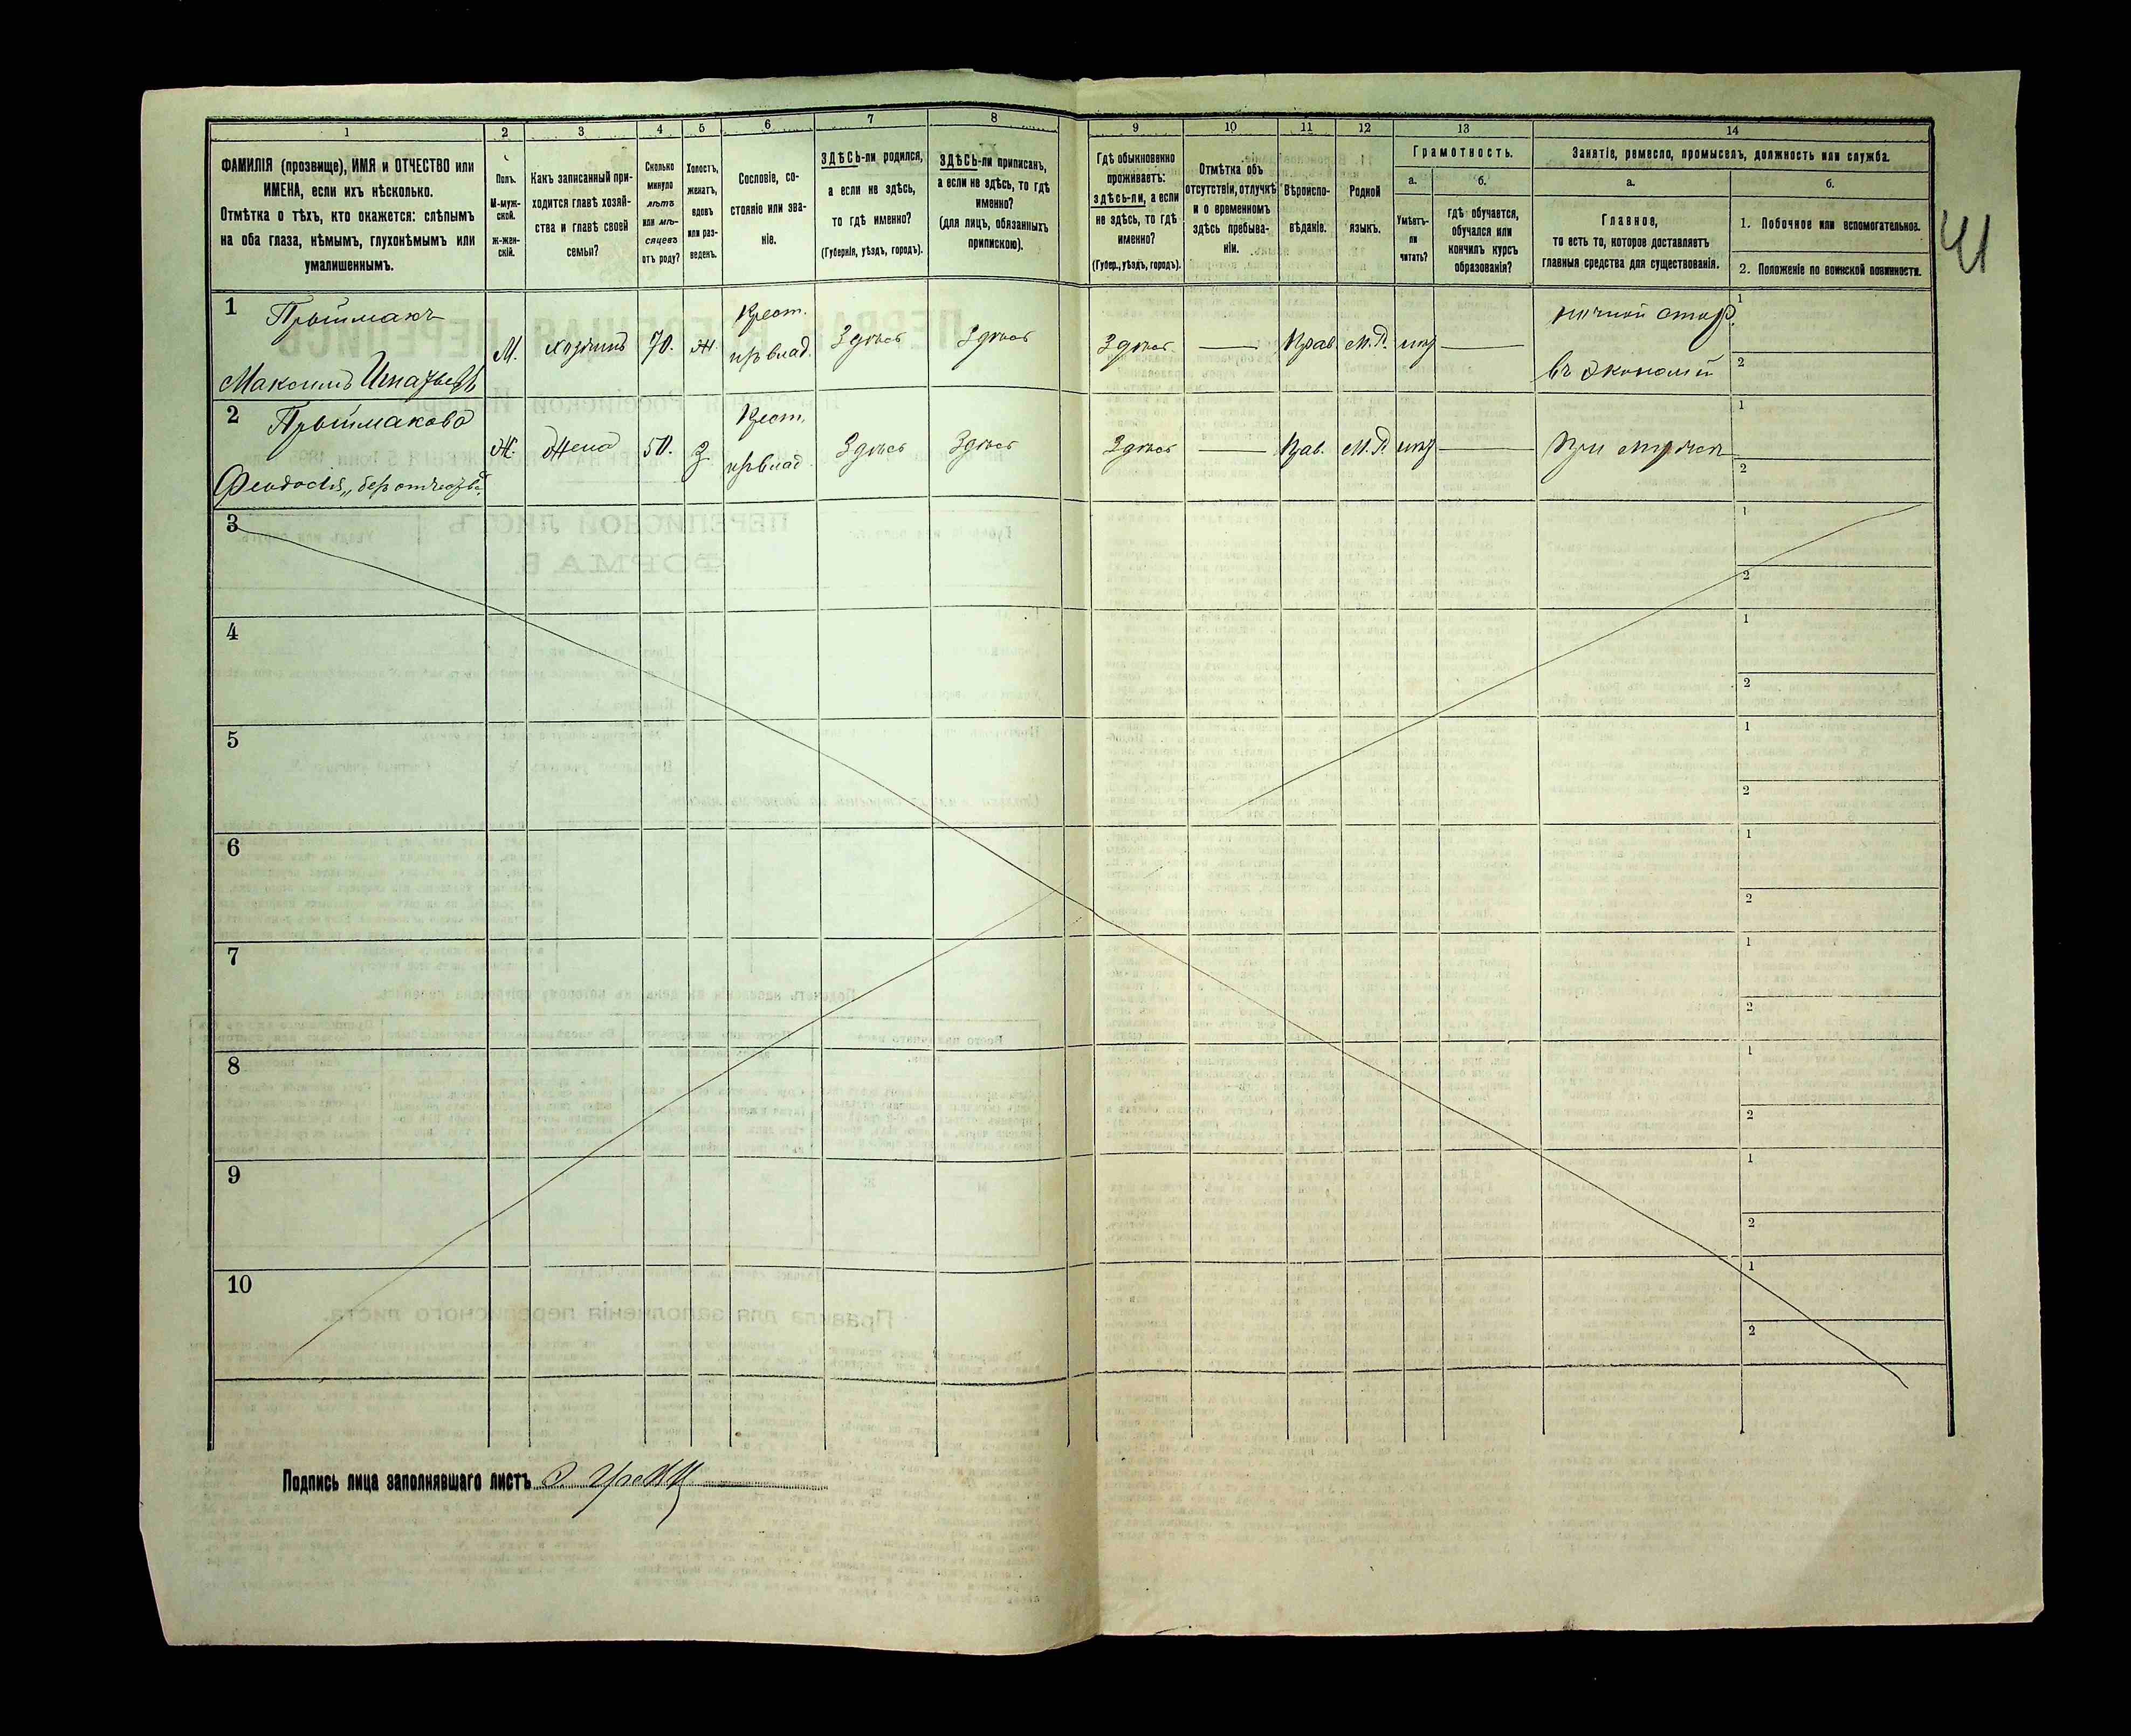 1 2 3 4 5 6 7 8 9 10 11 12 13 14
ФАМИЛІЯ (прозвище), ИМЯ и ОТЧЕСТВО или
ИМЕНА, если ихъ нѣсколько.
Отмѣтка о тѣхъ, кто окажется: слѣпымъ
на оба глаза, нѣмымъ, глухонѣмымъ или
умалишеннымъ.
Полъ.
М-муж-
ской.
ж-жен-
скій.
Какъ записанный при-
ходится главѣ хозяй-
ства и главѣ своей
семьи?
Сколько
минуло
лѣтъ
или мѣ-
сяцевъ
отъ роду?
Холостъ,
женатъ,
вдовъ
или раз-
веденъ.
Сословіе, со-
стояніе или зва-
ніе.
ЗДѢСЬ-ли родился,
а если не здѣсь,
то гдѣ именно?
(Губернія, уѣздъ, городъ).
ЗДѢСЬ-ли приписанъ,
а если не здѣсь, то гдѣ
именно?
(для лицъ, обязанныхъ
припискою).
Гдѣ обыкновенно
проживаетъ:
здѣсь-ли, а если
не здѣсь, то гдѣ
именно?
(Губер., уѣздъ, городъ).
Отмѣтка объ
отсутствіи, отлучкѣ
и о временномъ
здѣсь пребыва-
ніи.
Вѣроиспо-
вѣданіе.
Родной
языкъ.
Грамотность.
а.
Умѣетъ-
ли
читать?
б.
гдѣ обучается,
обучался или
кончилъ курсъ
образованія?
Занятіе, ремесло, промыселъ, должность или служба.
а.
Главное,
то есть то, которое доставляетъ
главныя средства для существованія.
б.
1. Побочное или вспомогательное.
2. Положеніе по воинской повинности.
41
1 Прыймакъ
Максимъ Игнатьевъ
М. хозяинъ 70. Ж.
Крест.
из влад. Здѣсь Здѣсь Здѣсь — Прав. М.Р. нѣтъ —
ночной стор.
въ экономіи
1
2
2 Прыймакова
Феодосія „безъ отчества“
Ж. Жена 50. З.
Крест.
из влад. Здѣсь Здѣсь Здѣсь — Прав. М.Р. нѣтъ —
При мужѣ
1
2
3
1
2
4
1
2
5
1
2
6
1
2
7
1
2
8
1
2
9
1
2
10
1
2
Подпись лица заполнявшаго листъ